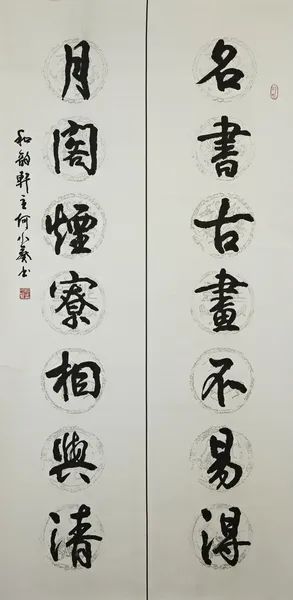 名書古畫不易得
月閣煙寮相與清
和韵軒主何小葵书